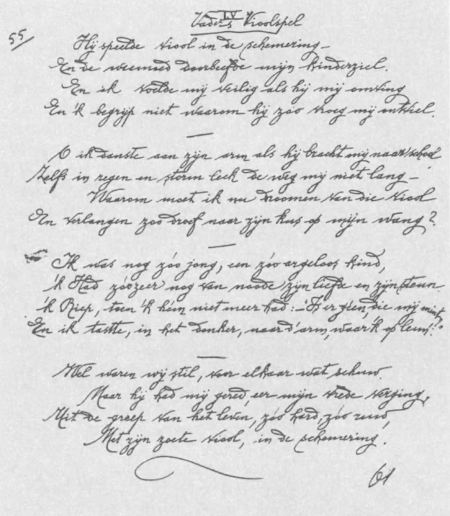 IV
Vader's Vioolspel
55/
Hij speelde viool in de schemering –
En de weemoed doorbeefde mijn kinderziel.
En ik voelde mij veilig als hij mij omving
En 'k begrijp niet waarom hij zoo vroeg mij ontviel.
O ik danste aan zijn arm als hij bracht mij naar school
Zelfs in regen en storm leek de weg mij niet lang –
Waarom moet ik nu droomen van die viool
En verlangen zoo droef naar zijn kus op mijn wang?
Ik was nog zóo jong, een zóo argeloos kind,
'k Had zoozeer nog van noode zijn liefde en zijn steun
'k Riep, toen 'k hem niet meer had: „Is er géén, die mij mint
En ik tastte, in het donker, naar d'arm, waar 'k op leun!"
Wel waren wij stil, voor elkaar wat schuw
Maar hij had mij gered, eer mijn vrede verging,
Uit de greep van het leven, zóo hard, zóo ruw,
Met zijn zoete viool, in de schemering.
61